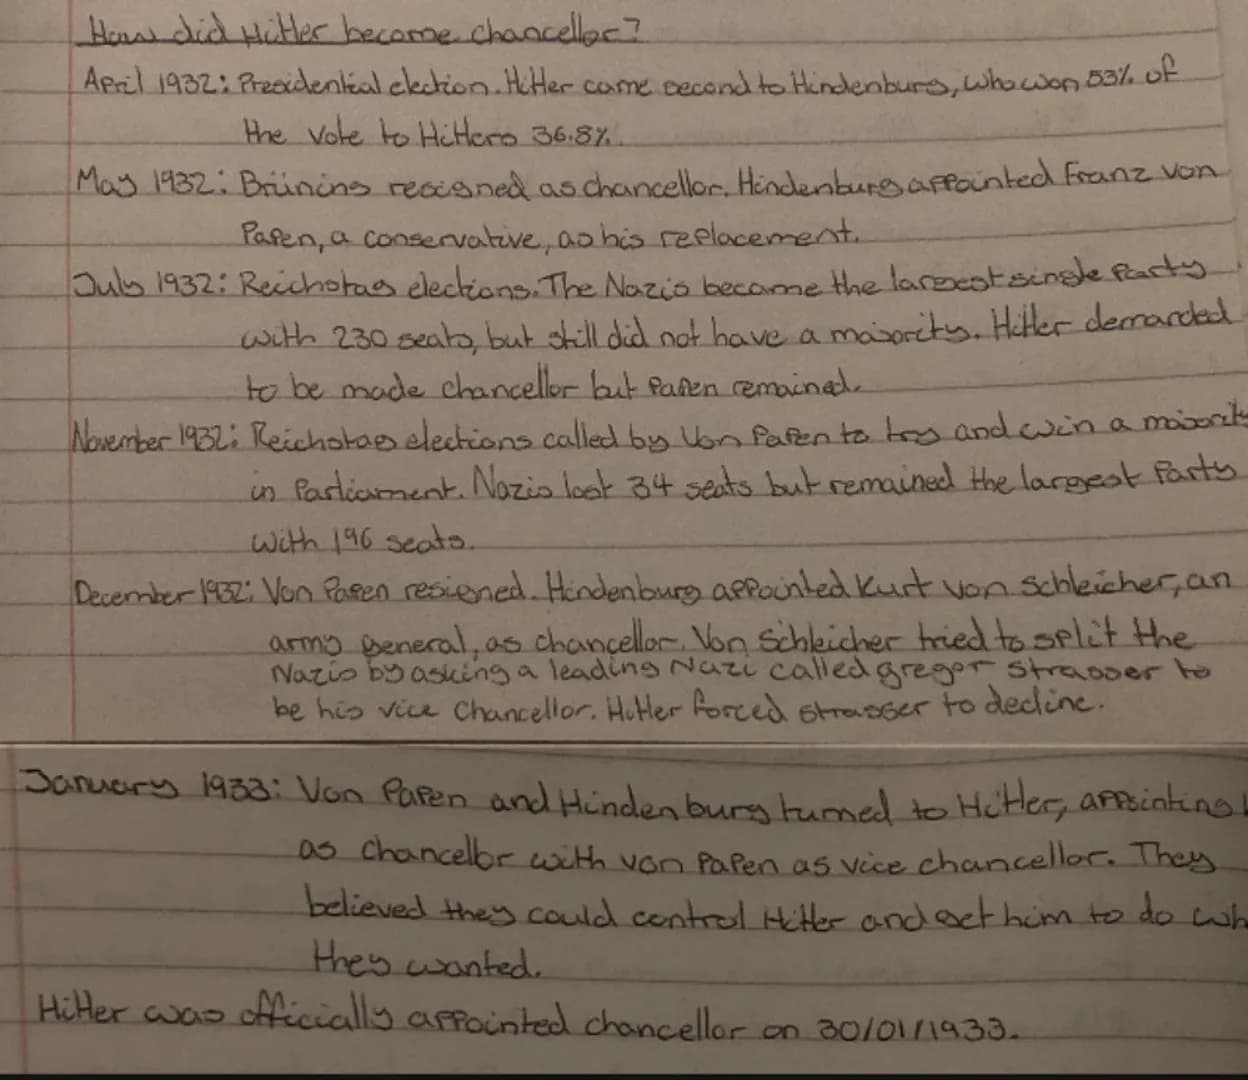 How did Hitler become chancellor?
April 1932: Presidential election. Hitler came second to Hindenburg, who won 53% of
the vote to Hitlers 36.8%.
May 1932: Brüning resigned as chancellor. Hindenburg appointed Franz von
Papen, a conservative, as his replacement.
July 1932: Reichstag elections. The Nazis became the largest single party
with 230 seats, but still did not have a majority. Hitler demanded
to be made chancellor but Papen remained.
November 1932: Reichstag elections called by Von Papen to try and win a majorit
in Parliament. Nazis lost 34 seats but remained the largest party
with 196 seats.
December 1932: Von Papen resigned. Hindenburg appointed Kurt von Schleicher, an
army general, as chancellor. Von Schleicher tried to split the
Nazis by asking a leading Nazi called gregor strasser to
be his vice chancellor. Hitler forced strasser to decline.
January 1933: Von Papen and Hindenburg turned to Hitler, appointing
as chancellor with von Papen as vice chancellor. They
believed they could control Hitler and get him to do wh
they wanted.
Hitler was officially appointed chancellor on 30/01/1933.